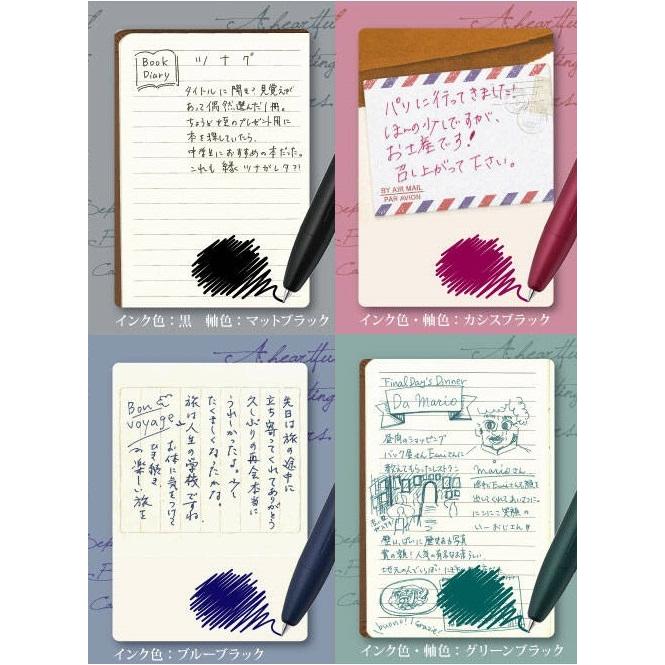 Book
Diary
ツナグ
タイトルに聞き覚えが
あって偶然選んだ1冊。
ちょうど姪のプレゼント用に
本を探していたら、
中学生におすすめの本だった。
これも縁 ツナがしタ?!
インク色：黒　軸色：マットブラック
A heartful
パリに行ってきました!
ほんの少しですが、
お土産です!
召し上がって下さい。
BY AIR MAIL
PAR AVION
インク色・軸色：カシスブラック
A heartful
先日は旅の途中に
立ち寄ってくれてありがとう
久しぶりの再会本当に
うれしかったよ。少し
たくましくなったかな。
旅は人生の学校ですね
お体に気をつけて
ひき続き
の楽しい旅を
Bon
voyage
インク色：ブルーブラック
Final Day's Dinner
Da Mario
昼間のショッピング
バック屋さんEmiさんに
教えてもらったレストラン
marioさん
にこにこ笑顔の
いーおじさん!!
壁いっぱいに歴史ある写真
賞の額！人気の有名なお店らしい
buono! Grazie!
インク色・軸色：グリーンブラック